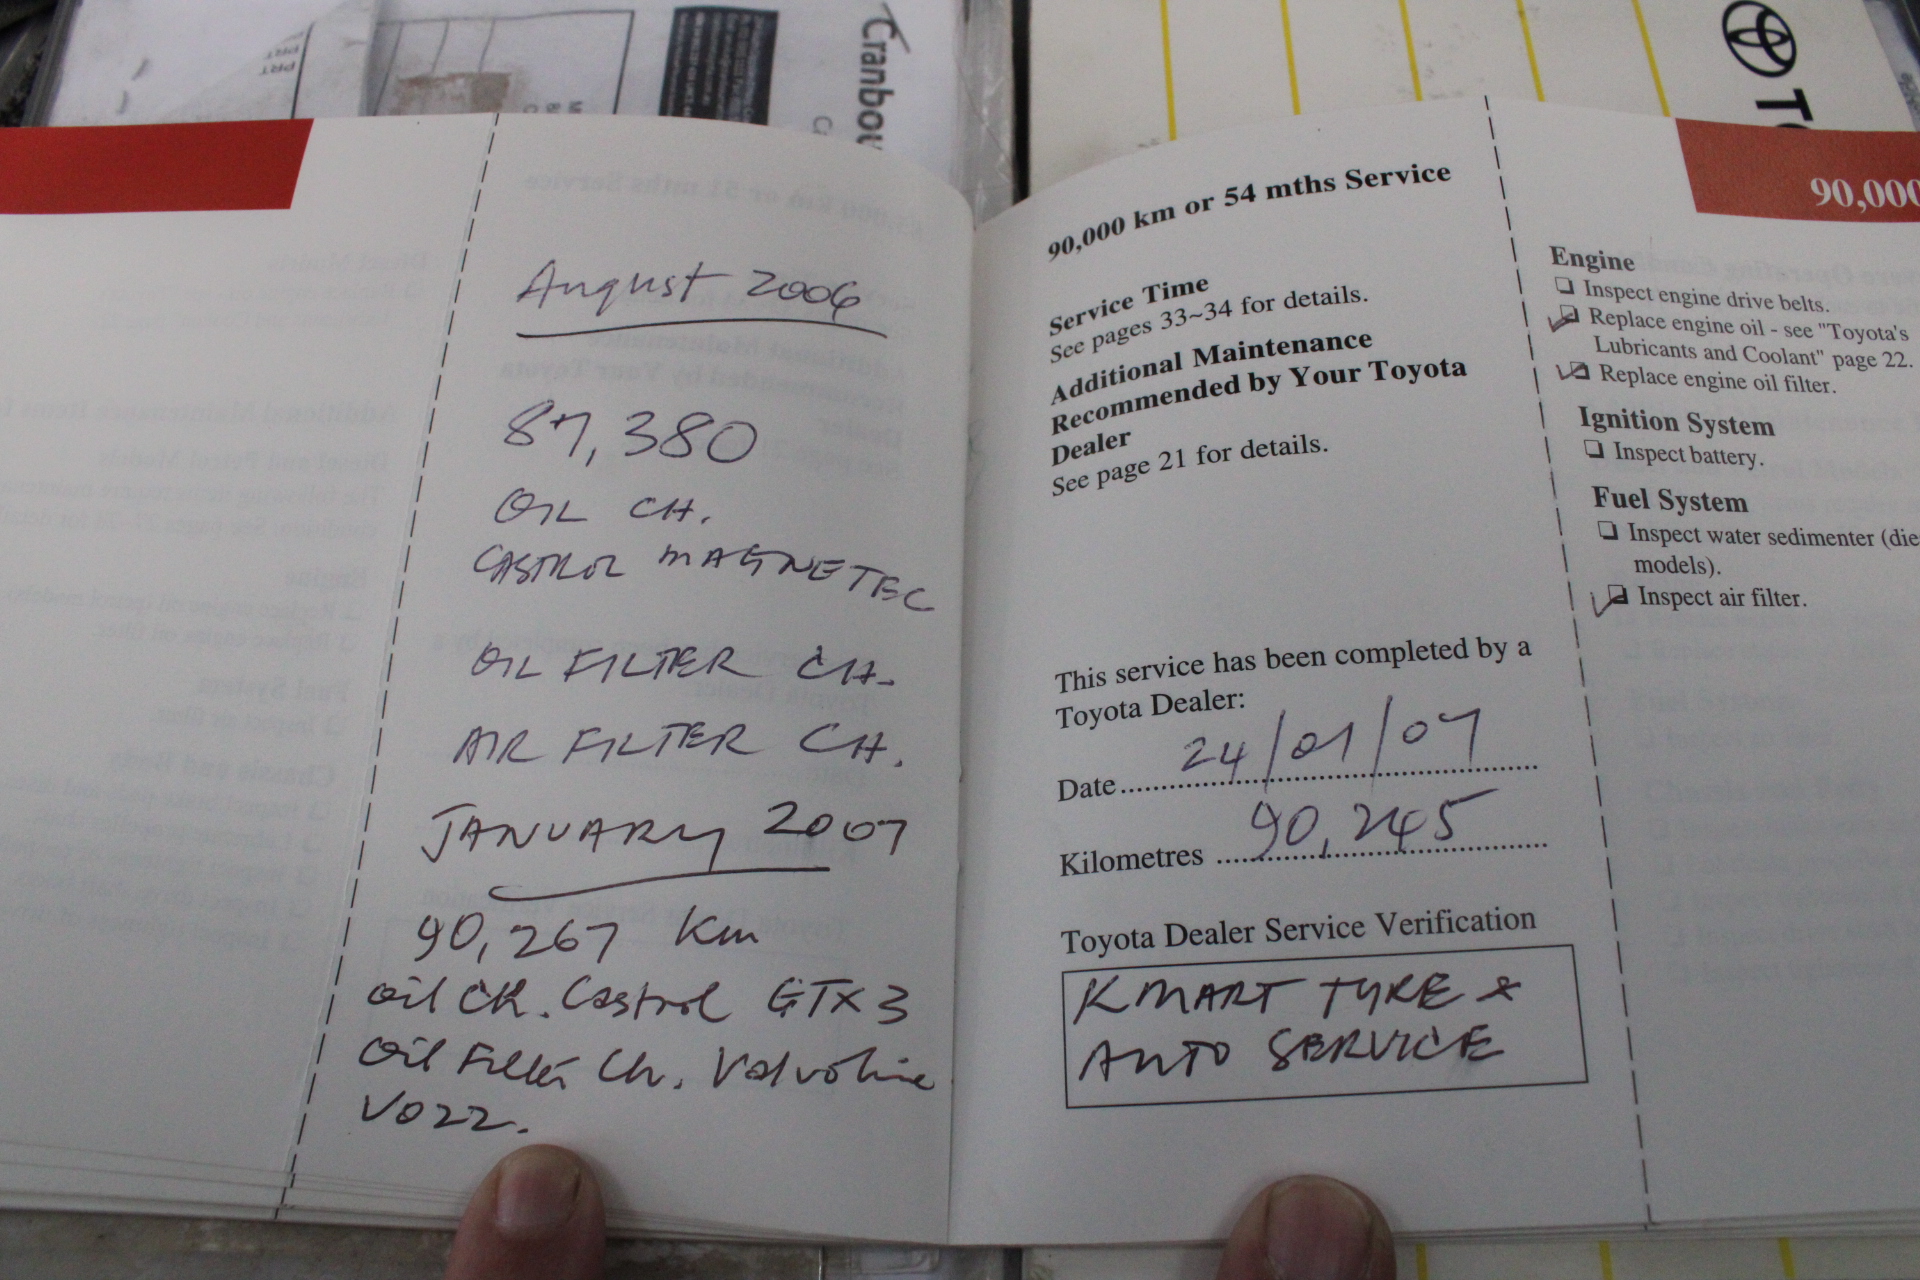 Cranbou
PRT
TO
August 2006
87,380
OIL CH.
CASTROL MAGNETEC
OIL FILTER CH.
AIR FILTER CH.
JANUARY 2007
90,267 Km
Oil CH. Castrol GTX 3
Oil Filter Ch. Valvoline
VO22.
90,000 km or 54 mths Service
Service Time
See pages 33~34 for details.
Additional Maintenance
Recommended by Your Toyota
Dealer
See page 21 for details.
This service has been completed by a
Toyota Dealer:
Date 24/01/07
Kilometres 90,245
Toyota Dealer Service Verification
KMART TYRE &
AUTO SERVICE
90,000
Engine
❏ Inspect engine drive belts.
❏ Replace engine oil - see "Toyota's
Lubricants and Coolant" page 22.
❏ Replace engine oil filter.
Ignition System
❏ Inspect battery.
Fuel System
❏ Inspect water sedimenter (die
models).
❏ Inspect air filter.